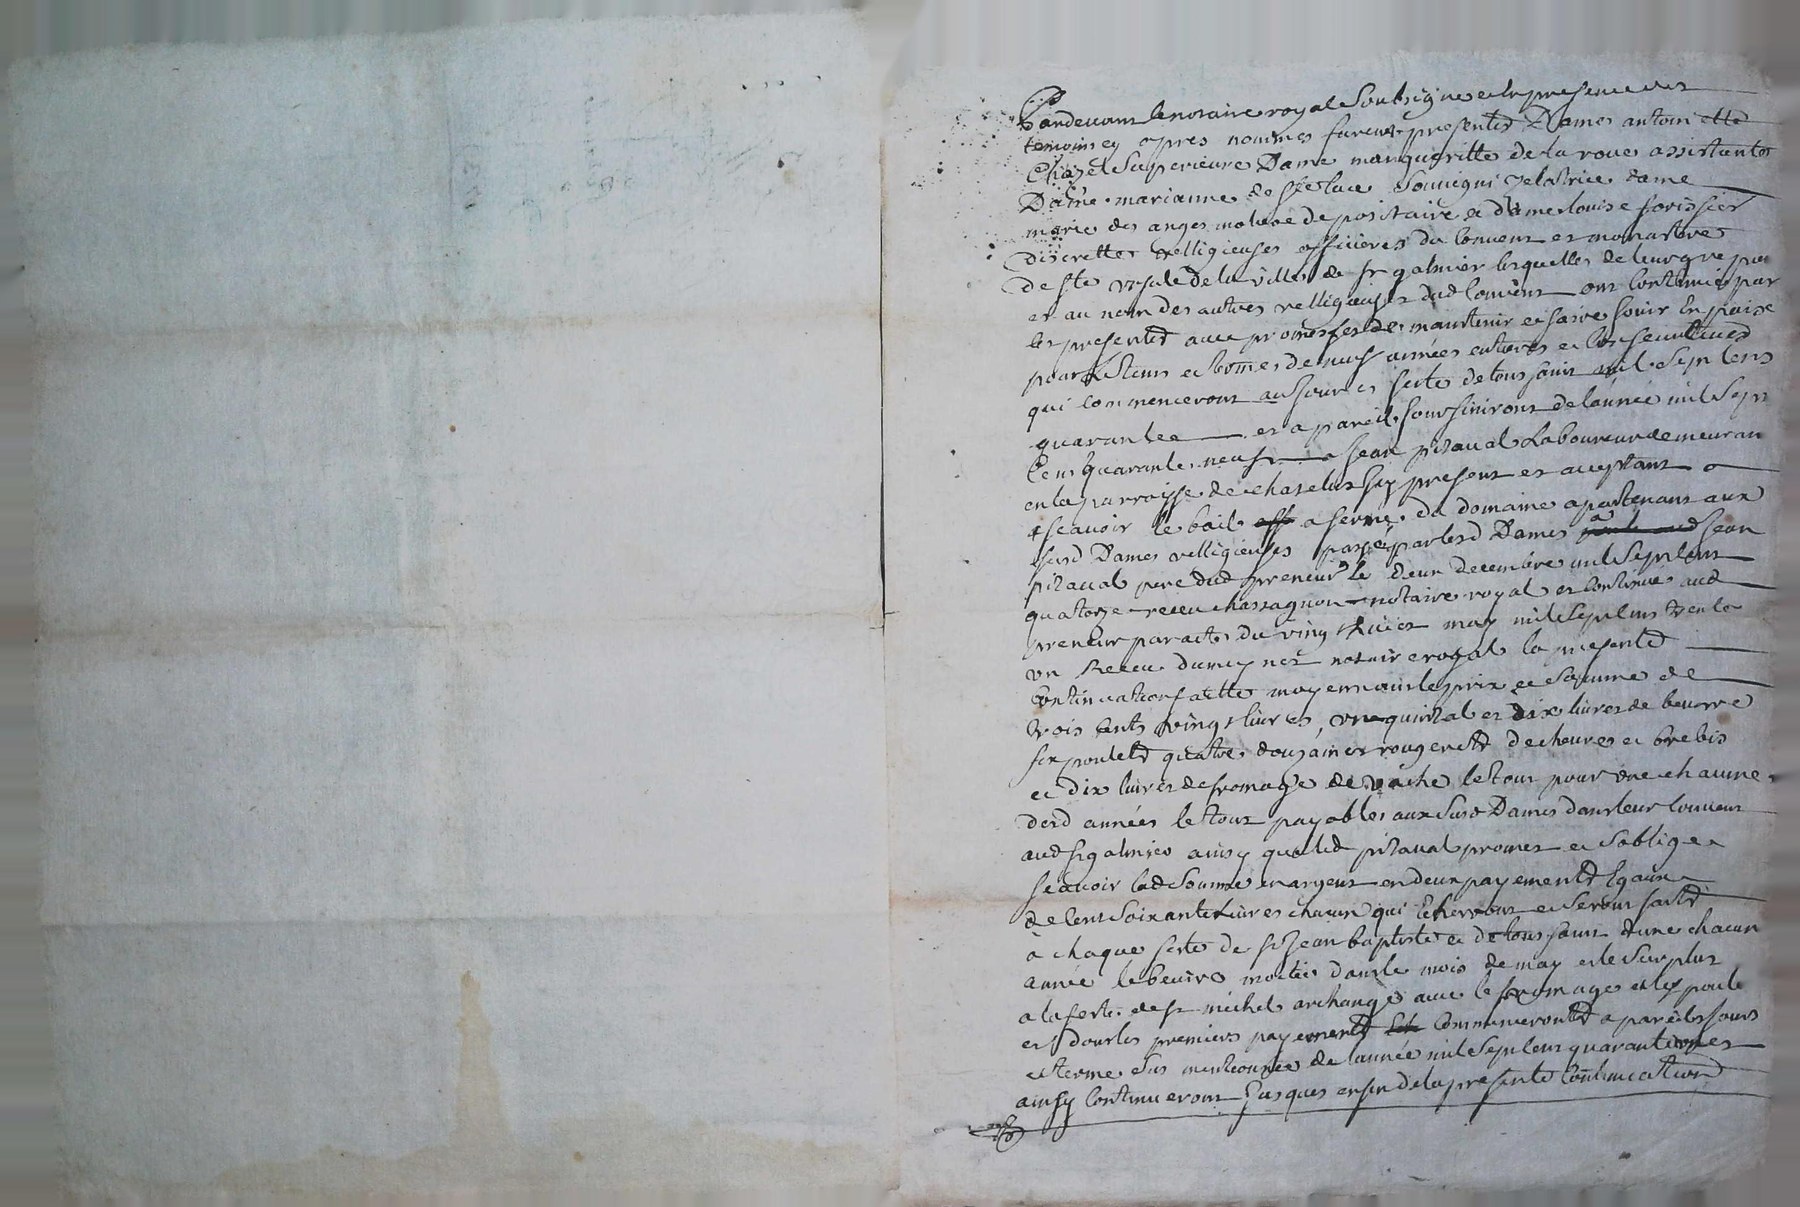 Pardevant le notaire royal soubsigné et en presence des
temoins cy apres nommes furent presentes Dames antoinette
Chazel superieure Dame margueritte de la roue assistante
Dame marianne de Ste luce Zelatrice dame
marie des anges depositaire et dame louise forissier
discrette relligieuses officieres du convent et monastere
de Ste Ursule de la ville de St galmier lesquelles de leur gre pour
et au nom des autres relligieuses dud convent ont continué par
les presentes avec promesses de maintenir et faire jouir en paix
pour le tems et terme de neuf années entieres et consecutives
qui commenceront au jour et feste de toussaint mil sept cens
quarante et a pareil jour finiront de lannée mil sept
cens quarante neuf a jean pitaval Laboureur demeurant
en la parroisse de chazelus icy present et acceptant
scavoir le bail a ferme du domaine apartenant aux
susd Dames relligieuses passé par lesd Dames a jean
pitaval pere dud preneur le deux decembre mil sept cent
quatorze receu chassagnon notaire royal et continué aud
preneur par acte du vingt huict may mil sept cens trente
un receu dumeynet notaire royal la presente
continuation faitte moyennant le prix et somme de
trois cents vingt livres, un quintal et dix livres de beurre
six poulets quatre douzaines rougerets de chevres et brebis
et dix livres de fromage de vache le tout pour une chacune
desd années le tout payables aux susd Dames dans leur convent
aud St galmier ainsy que led pitaval promet et soblige
scavoir lad somme en argent en deux payements egaux
de cent soixante livres chacun qui echerront et seront faits
à chaque feste de St Jean baptiste et de toussaint dune chacun
année le beurre moitié dans le mois de may et le surplus
a la feste de St michel archange avec le fromage et les poulets
et dont les premiers payements commenceront a pareils jours
et terme sus mentionnée de lannée mil sept cent quarante un et
ainsy continueront jusques en fin de la presente continuation